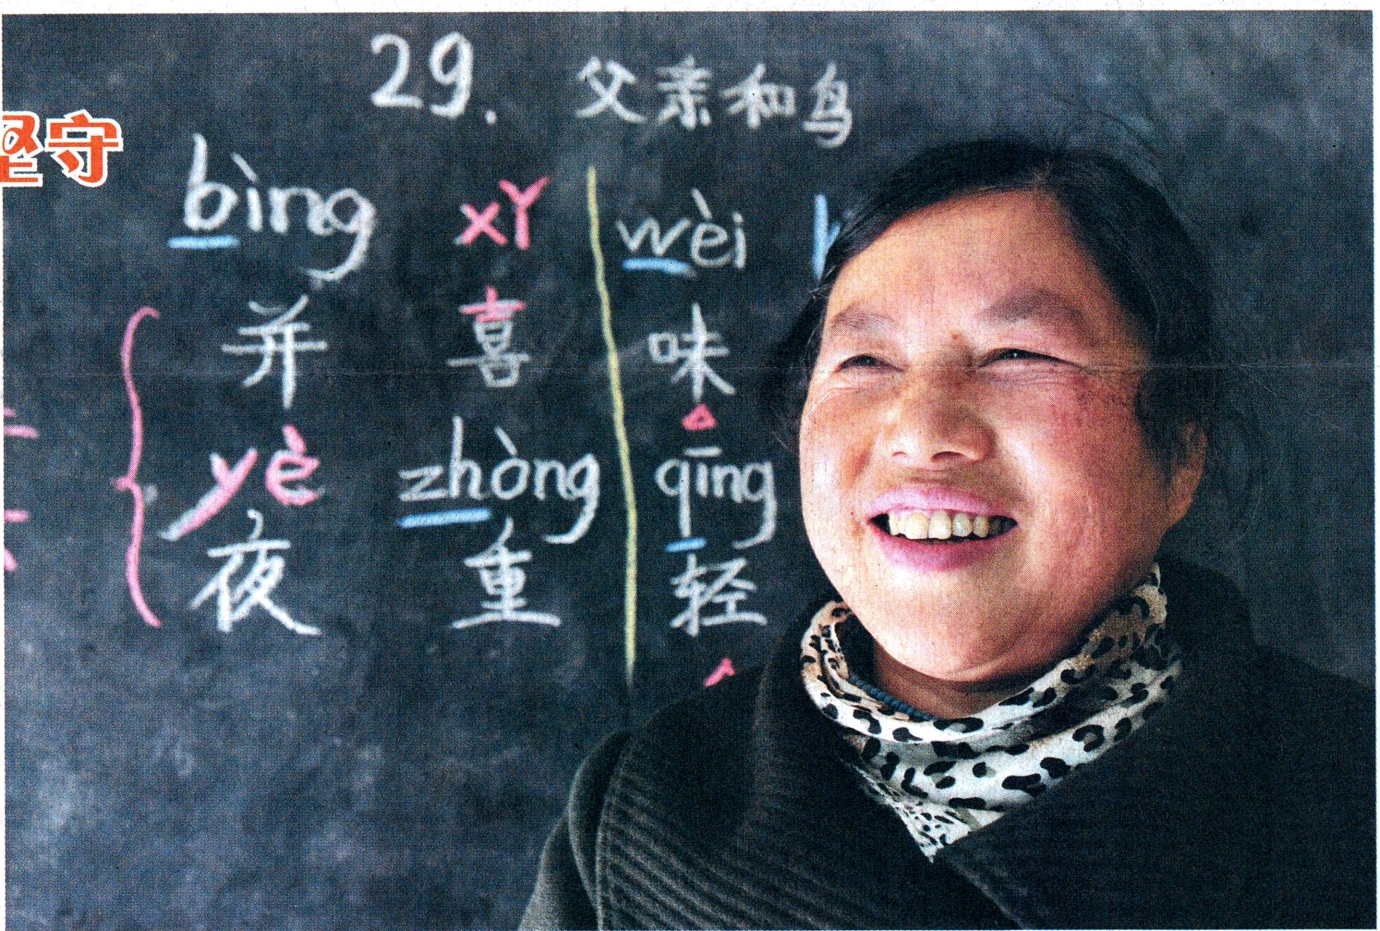 29. 父亲和鸟
坚守
bìng xǐ wèi
并 喜 味
yè zhòng qīng
夜 重 轻